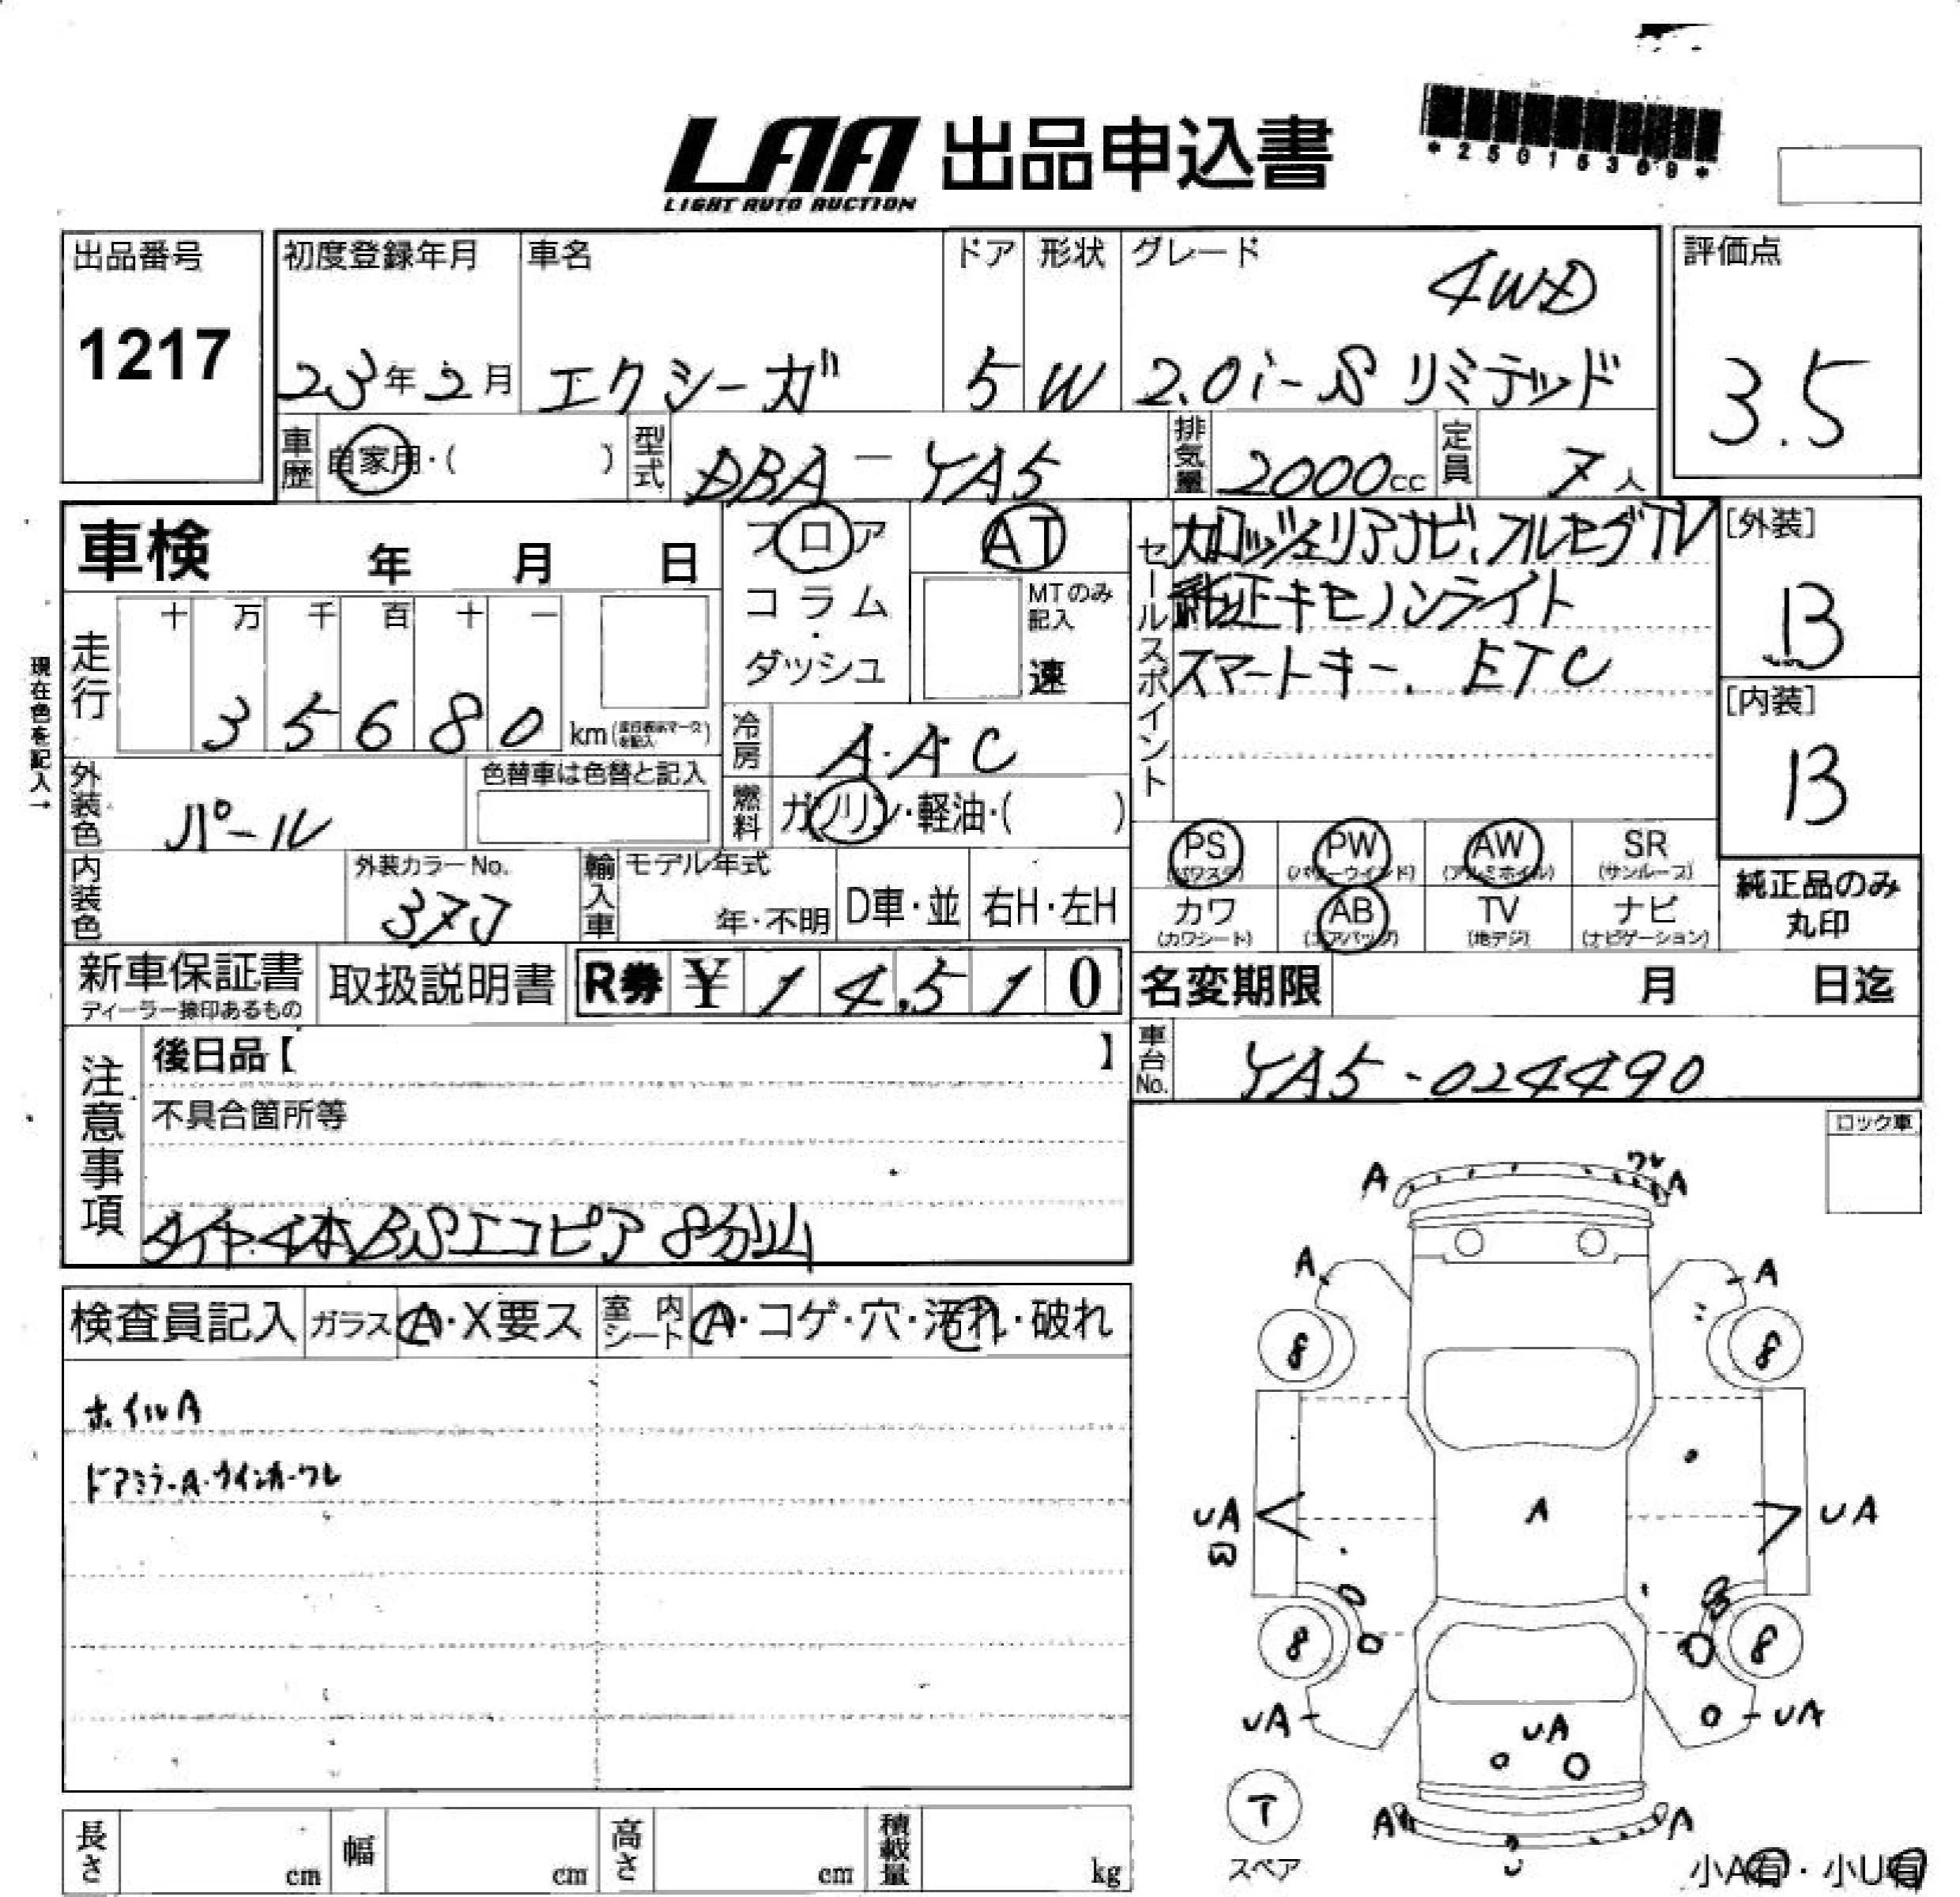 LAA 出品申込書
LIGHT AUTO AUCTION
*25016369*
出品番号 初度登録年月 車名 ドア 形状 グレード 評価点
4WD
1217 23年2月 エクシーガ 5 W 2.0i-S リミテッド 3.5
車歴 自家用・( ) 型式 DBA-YA5 排気量 2000cc 定員 7人
車検 年 月 日 フロア AT セールスポイント カロッツェリアナビ、フルセグTV [外装]
コラム・ MTのみ記入 純正キセノンライト B
走行 十 万 千 百 十 一 ダッシュ 速 スマートキー、ETC [内装]
35680 km 冷房 A.A.C B
現在色を記入→
外装色 パール 色替車は色替と記入 燃料 ガソリン・軽油・( )
PS(パワステ) PW(パワーウインド) AW(アルミホイル) SR(サンルーフ) 純正品のみ丸印
内装色 外装カラーNo. 37J 輸入車 モデル年式 年・不明 D車・並 右H・左H
カワ(カワシート) AB(エアバッグ) TV(地デジ) ナビ(ナビゲーション)
新車保証書 取扱説明書 R券 ¥14,510 名変期限 月 日迄
ディーラー捺印あるもの
注意事項 後日品【 】 車台No. YA5-024490
不具合箇所等
ロック車
タイヤ4本BSエコピア 8分山
検査員記入 ガラス A・X要ス 室内シート A・コゲ・穴・汚れ・破れ
ホイルA
ドアミラーA・ウインカーワレ
A ワレ A
A A
8 8
UA A UA
W
W
8 8
UA UA UA
T
スペア
A A
U
長さ cm 幅 cm 高さ cm 積載量 kg
小A有・小U有